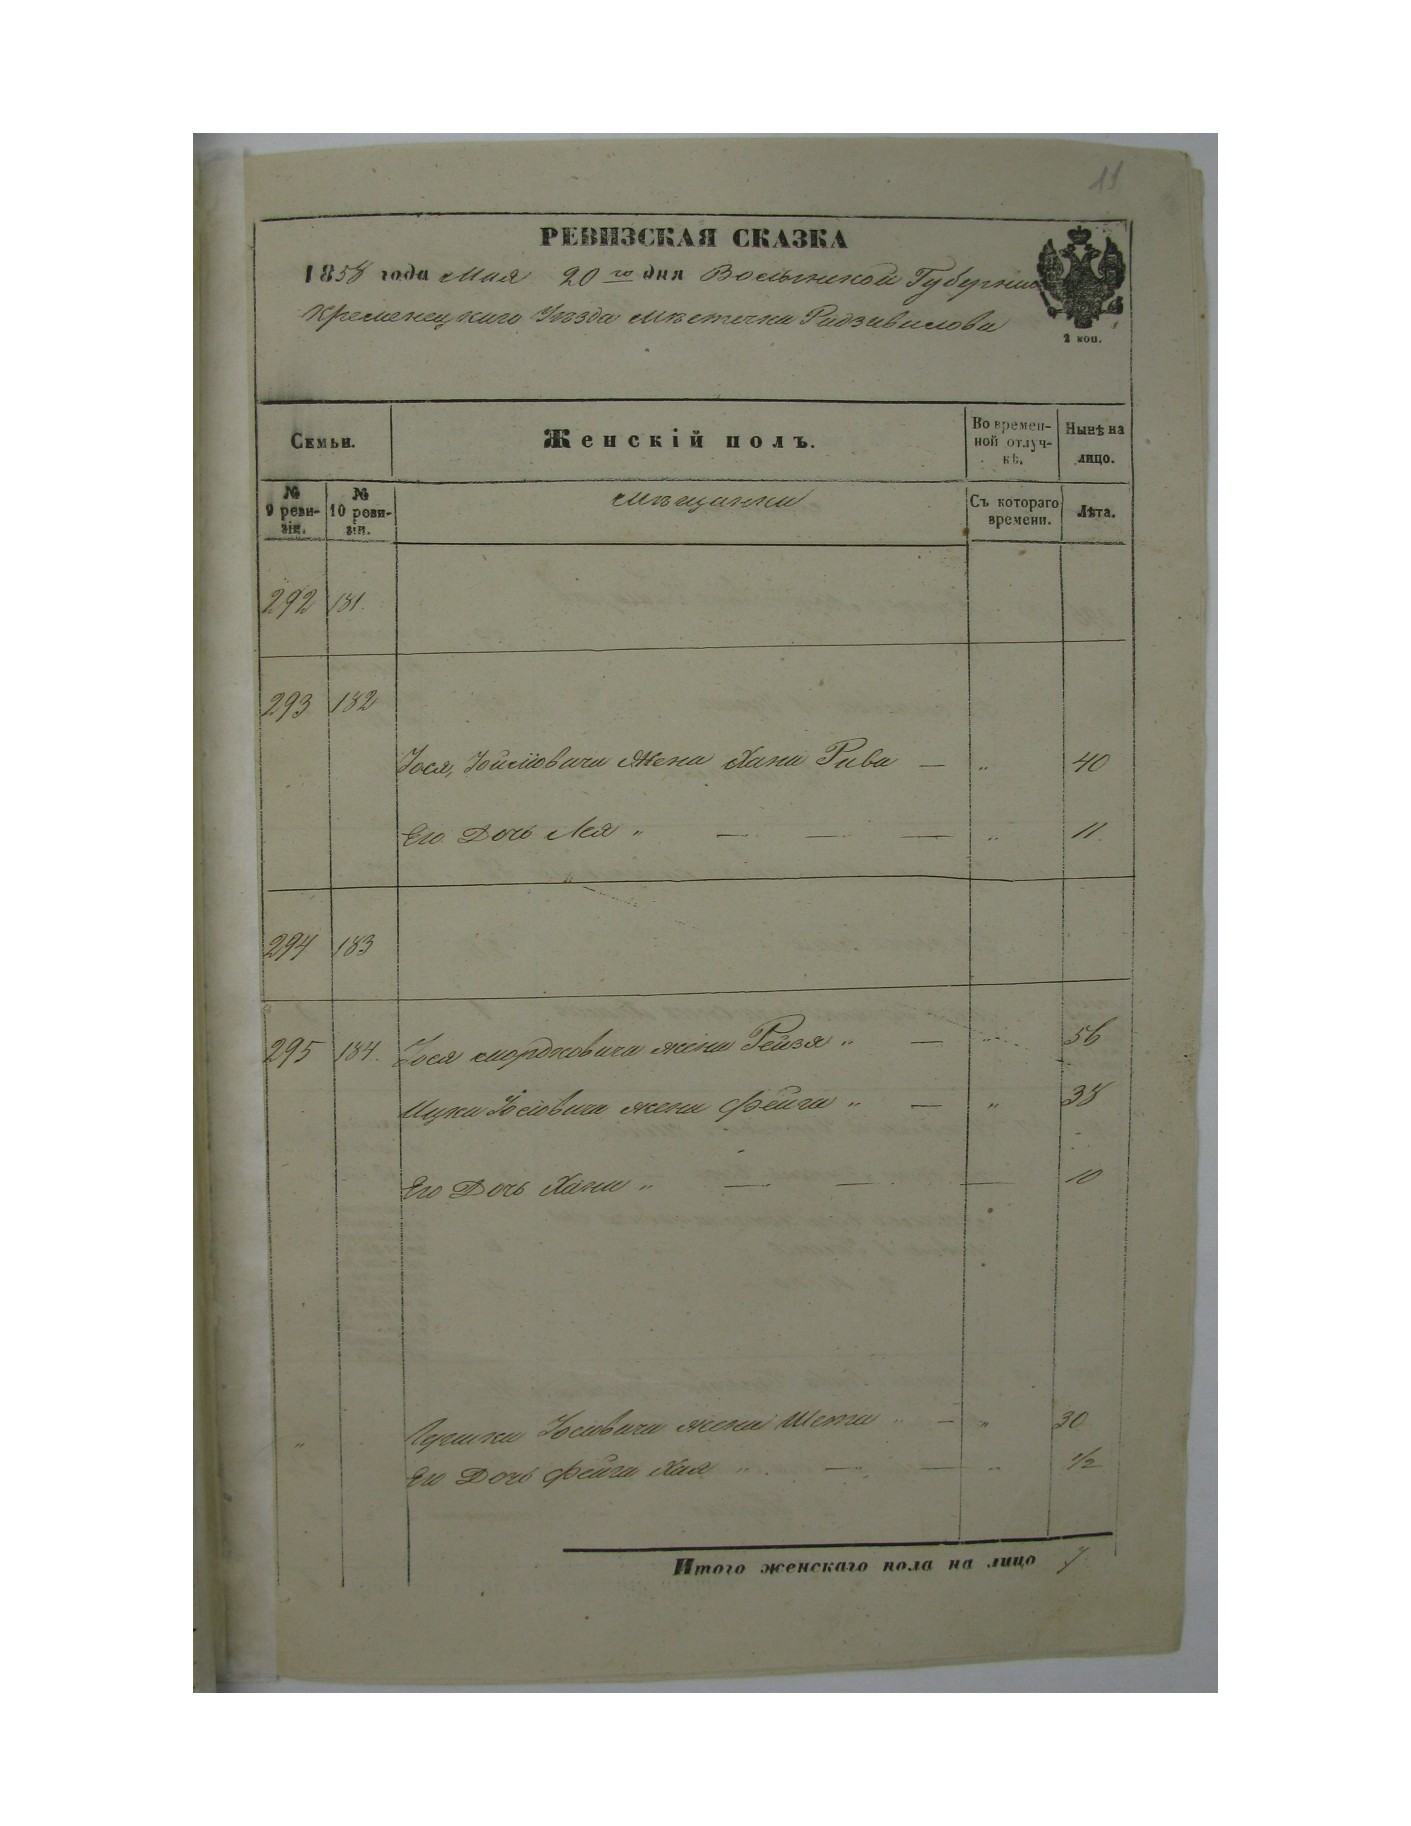 11
РЕВИЗСКАЯ СКАЗКА
1858 года Мая 20 го дня Волынской Губернии
Кременецкаго Уѣзда Мѣстечка Радзивилова
2 коп.
Семьи.
Женскій полъ.
Во времен-
ной отлуч-
кѣ.
Нынѣ на
лицо.
№
9 реви-
зіи.
№
10 реви-
зіи.
Мѣщанки
Съ котораго
времени.
Лѣта.
292 181.
293 182
Іося, Жена Хана Рива — „ 40
Его Дочь Лея „ — — — „ 11.
294 183
295 184. Іося Мордковича жена Рейзя „ — „ 56
Ицки Іосіовича жена Фейга „ — „ 38
Его Дочь Хана „ — — — 10
„ Іосіовича жена „ — „ 30
Его Дочь Фейга Хая „ — — „ 1/2
Итого женскаго пола на лицо 7